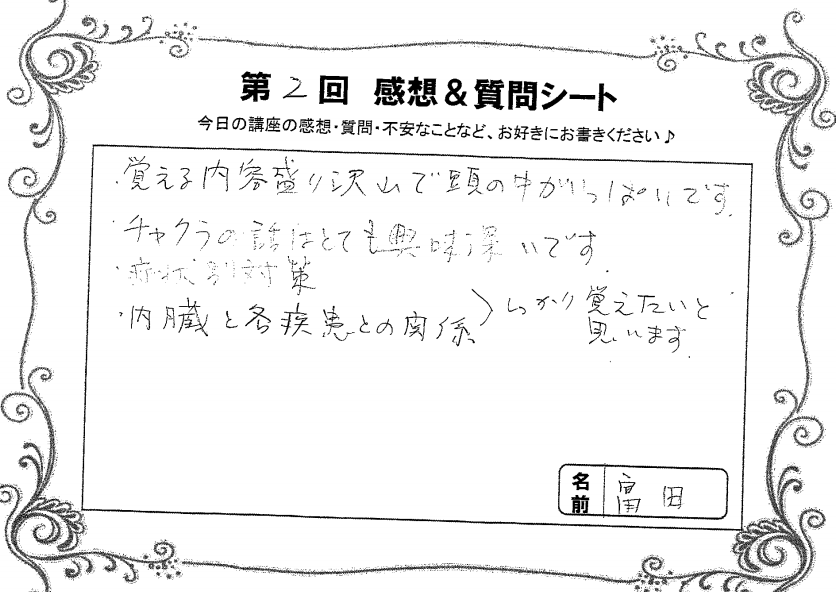 第2回 感想&質問シート
今日の講座の感想・質問・不安なことなど、お好きにお書きください♪
・覚える内容盛り沢山で頭の中がいっぱいです。
・チャクラの話はとても興味深いです。
・症状別対策
・内臓と各疾患との関係
〉しっかり覚えたいと
思います。
名前 富田